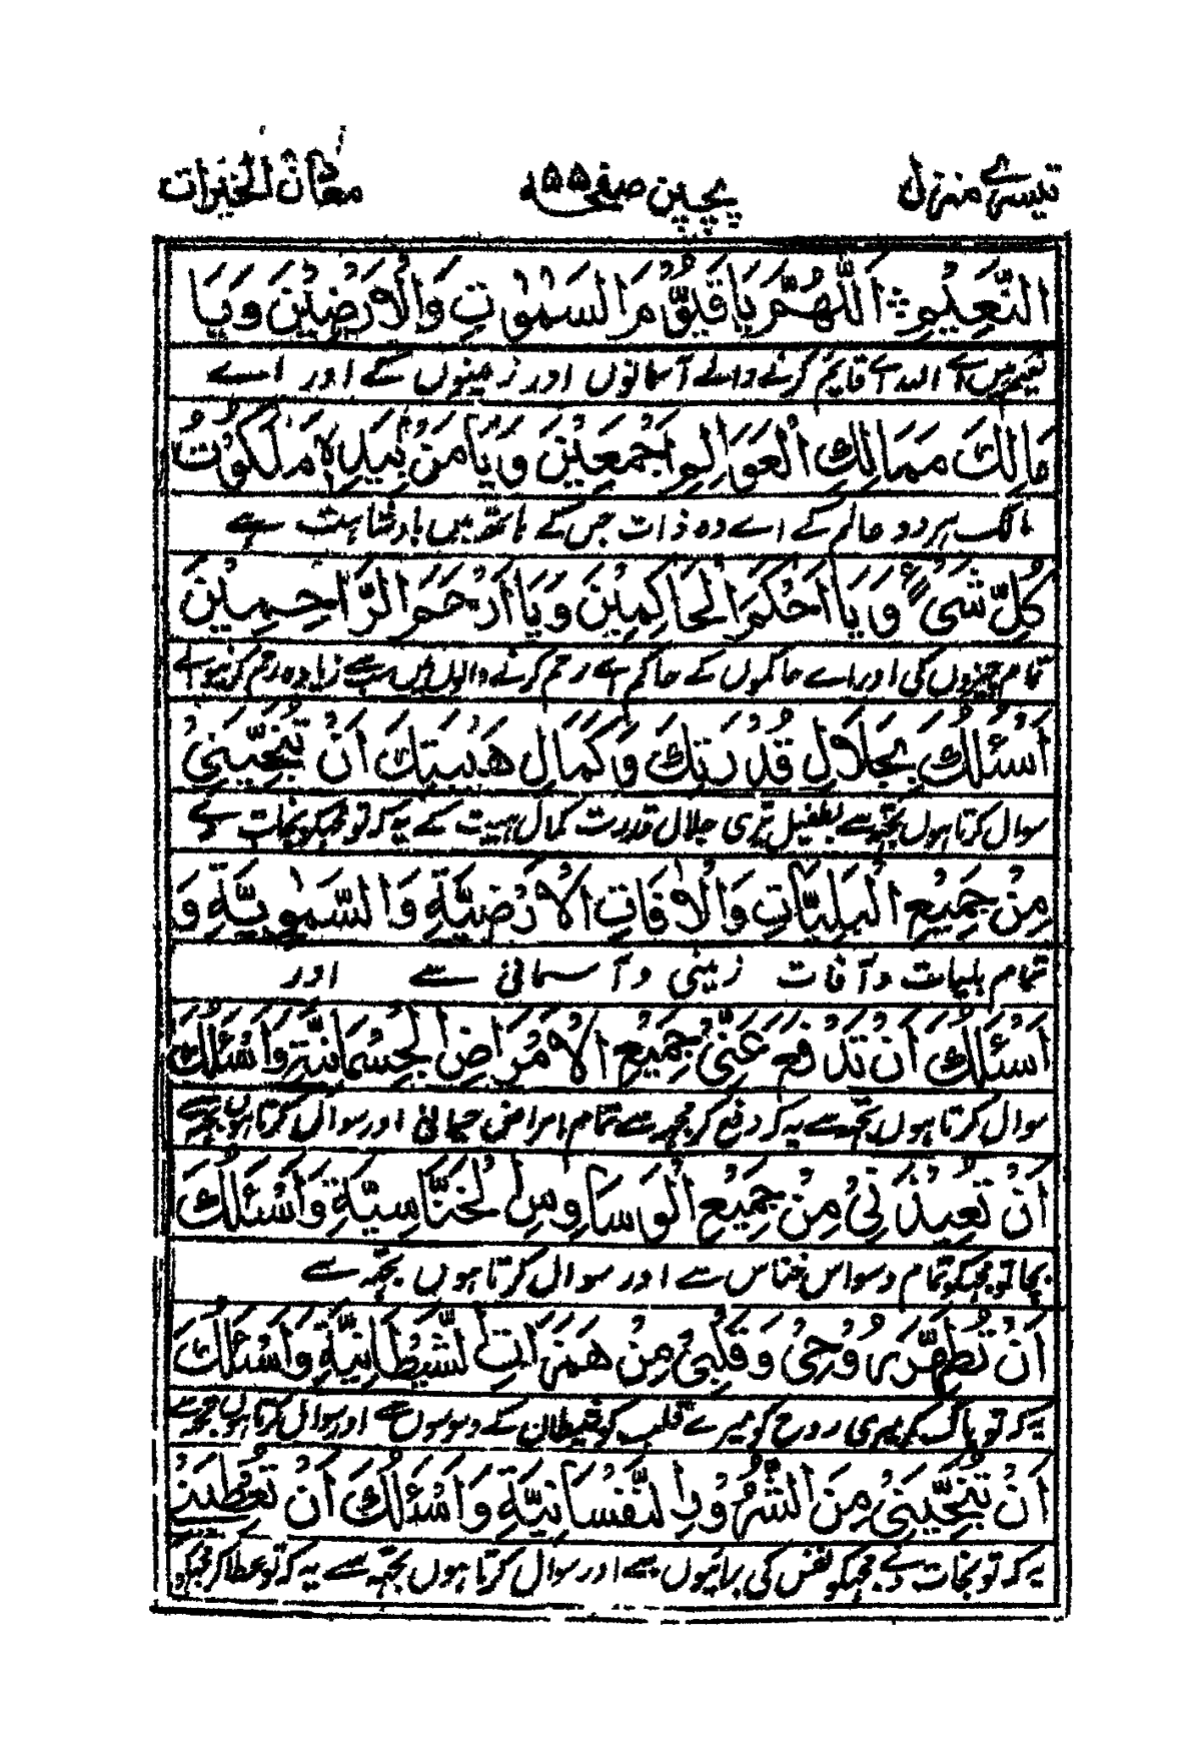 تیسری منزل
پچپن صفحہ ۵۵
معدن الخیرات
النَّعِيْمِ ؞ اَللّٰهُمَّ يَا قَيُّوْمَ السَّمٰوٰتِ وَالْاَرَضِيْنَ وَيَا
نعیم میں اے اللہ اے قایم کرنے والے آسمانوں اور زمینوں کے اور اے
مَالِكَ مَمَالِكِ الْعَوَالِمِ اَجْمَعِيْنَ وَيَا مَنْ بِيَدِهٖ مَلَكُوْتُ
مالک ہر دو عالم کے اے وہ ذات جس کے ہاتھ میں بادشاہت ہے
كُلِّ شَیْءٍ وَيَا اَحْكَمَ الْحَاكِمِيْنَ وَيَا اَرْحَمَ الرَّاحِمِيْنَ
تمام چیزوں کی اور اے حاکموں کے حاکم اے رحم کرنے والوں میں سب سے زیادہ رحم کرنیوالے
اَسْئَلُكَ بِجَلَالِ قُدْرَتِكَ وَكَمَالِ هَيْبَتِكَ اَنْ تُنَجِّيَنِیْ
سوال کرتا ہوں تجھ سے بطفیل تیری جلال قدرت کمال ہیبت کے یہ کہ تو مجھکو نجات دے
مِنْ جَمِيْعِ الْبَلِيَّاتِ وَالْاٰفَاتِ الْاَرْضِيَّةِ وَالسَّمٰوِيَّةِ وَ
تمام بلیات و آفات زمینی و آسمانی سے اور
اَسْئَلُكَ اَنْ تَدْفَعَ عَنِّیْ جَمِيْعَ الْاَمْرَاضِ الْجِسْمَانِيَّةِ وَاَسْئَلُكَ
سوال کرتا ہوں تجھ سے یہ کہ دفع کر مجھ سے تمام امراض جسمانی اور سوال کرتا ہوں تجھ سے
اَنْ تُعِيْذَنِیْ مِنْ جَمِيْعِ الْوَسَاوِسِ الْخَنَّاسِيَّةِ وَاَسْئَلُكَ
بچا تو مجھکو تمام وسواس خناس سے اور سوال کرتا ہوں تجھ سے
اَنْ تُطَهِّرَ رُوْحِیْ وَقَلْبِیْ مِنْ هَمَزَاتِ الشَّيْطَانِيَّةِ وَاَسْئَلُكَ
یہ کہ تو پاک کر میری روح کو میرے قلب کو شیطان کے وسوسوں سے اور سوال کرتا ہوں تجھ سے
اَنْ تُنَجِّيَنِیْ مِنَ الشُّرُوْرِ النَّفْسَانِيَّةِ وَاَسْئَلُكَ اَنْ تُعْطِيَنِیْ
یہ کہ تو نجات دے مجھکو نفس کی برائیوں سے اور سوال کرتا ہوں تجھ سے یہ کہ تو عطا کر مجھکو